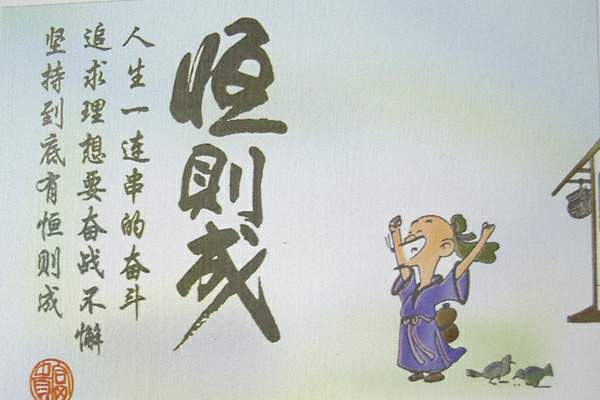 恒则成
人生一连串的奋斗
追求理想要奋战不懈
坚持到底有恒则成